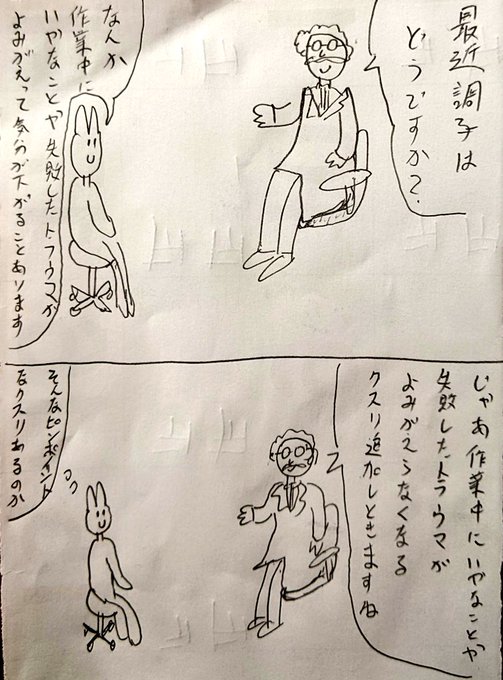 最近調子は
どうですか？
なんか
作業中に
いやなことや失敗したトラウマが
よみがえって気分が下がることあります
じゃあ作業中にいやなことや
失敗したトラウマが
よみがえらなくなる
クスリ追加しときますね
そんなピンポイント
なクスリあるのか